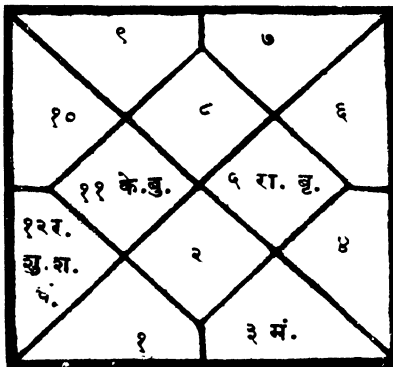 ९ ७
१० ८ ६
११ के.बु. ५ रा. बृ.
१२र. २ ४
शु.श.
चं.
१ ३ मं.